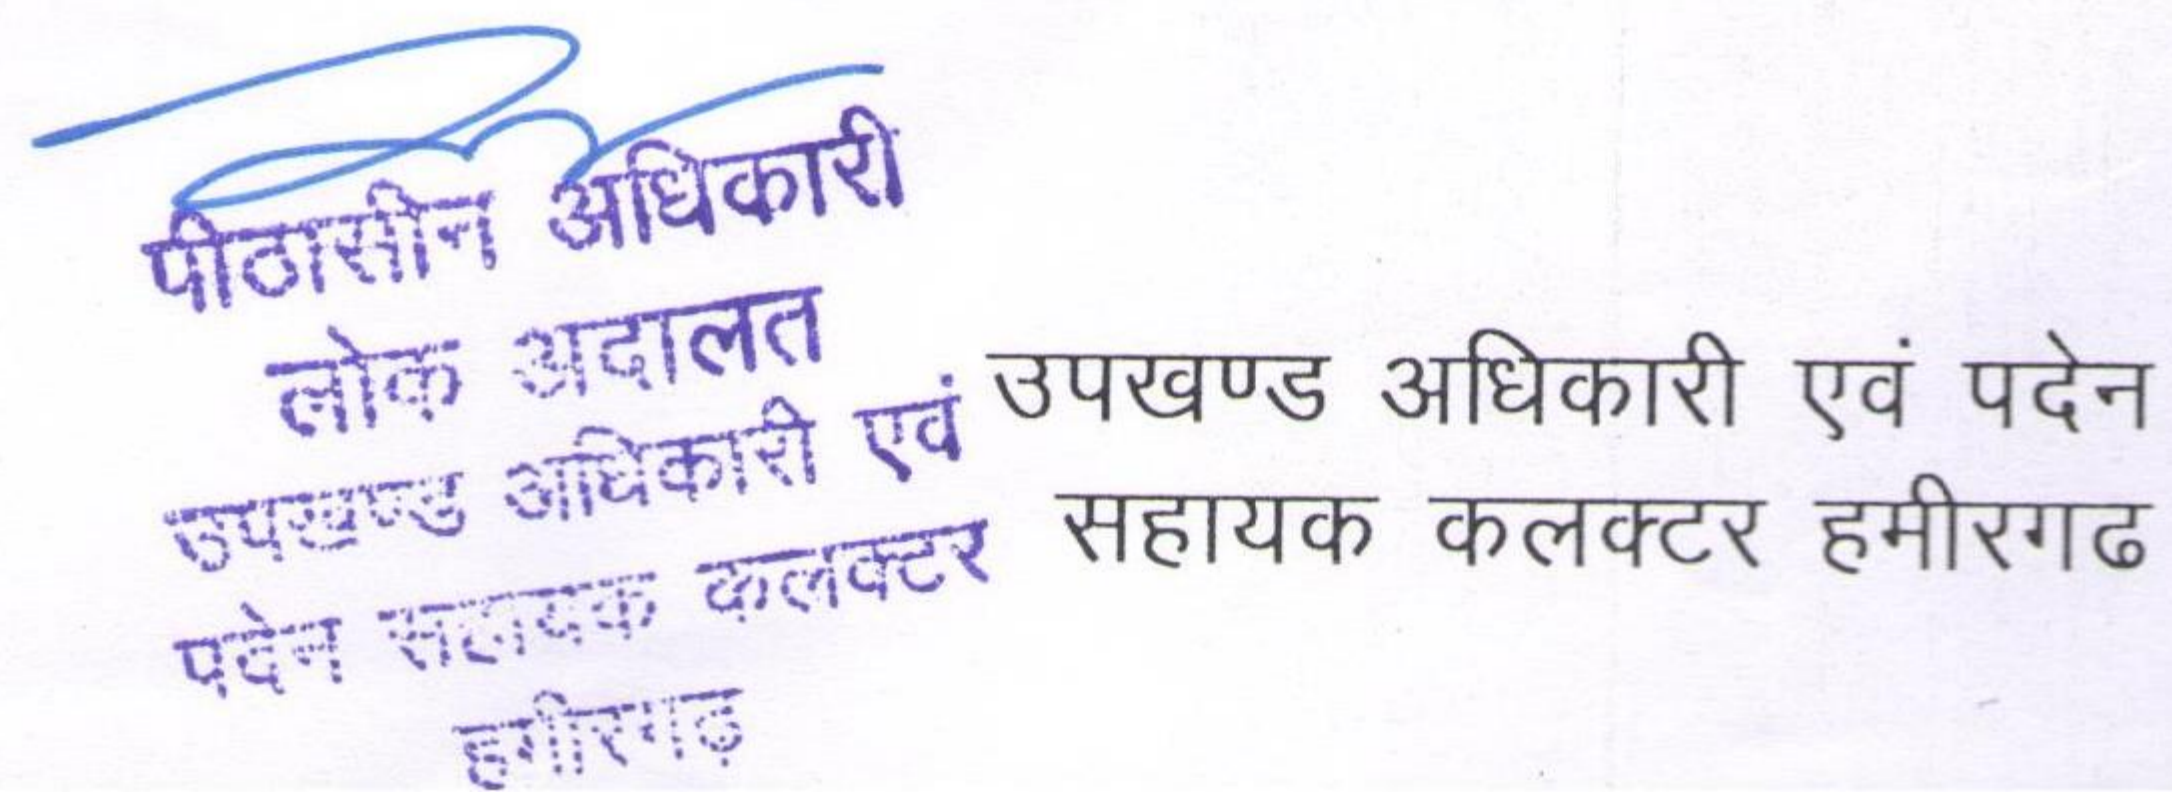 पीठासीन अधिकारी
लोक अदालत
उपखण्ड अधिकारी एवं
पदेन सहायक कलक्टर
हमीरगढ़
उपखण्ड अधिकारी एवं पदेन
सहायक कलक्टर हमीरगढ